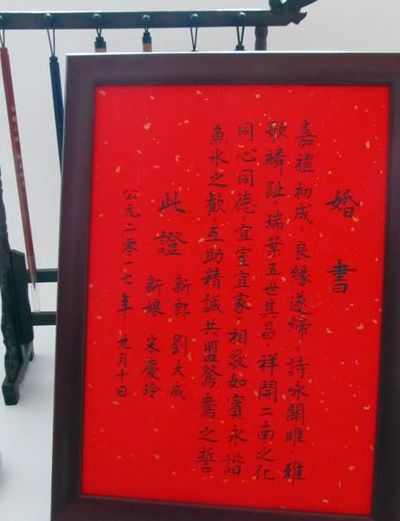 婚書
嘉禮初成。良緣遂締。詩咏關雎。雅
歌麟趾。瑞葉五世其昌。祥開二南之化
同心同德。宜室宜家。相敬如賓永諧
魚水之歡。互助精誠共盟鴛鴦之誓
此證
新郎 劉大成
新娘 宋慶玲
公元二零一七年 九月十日